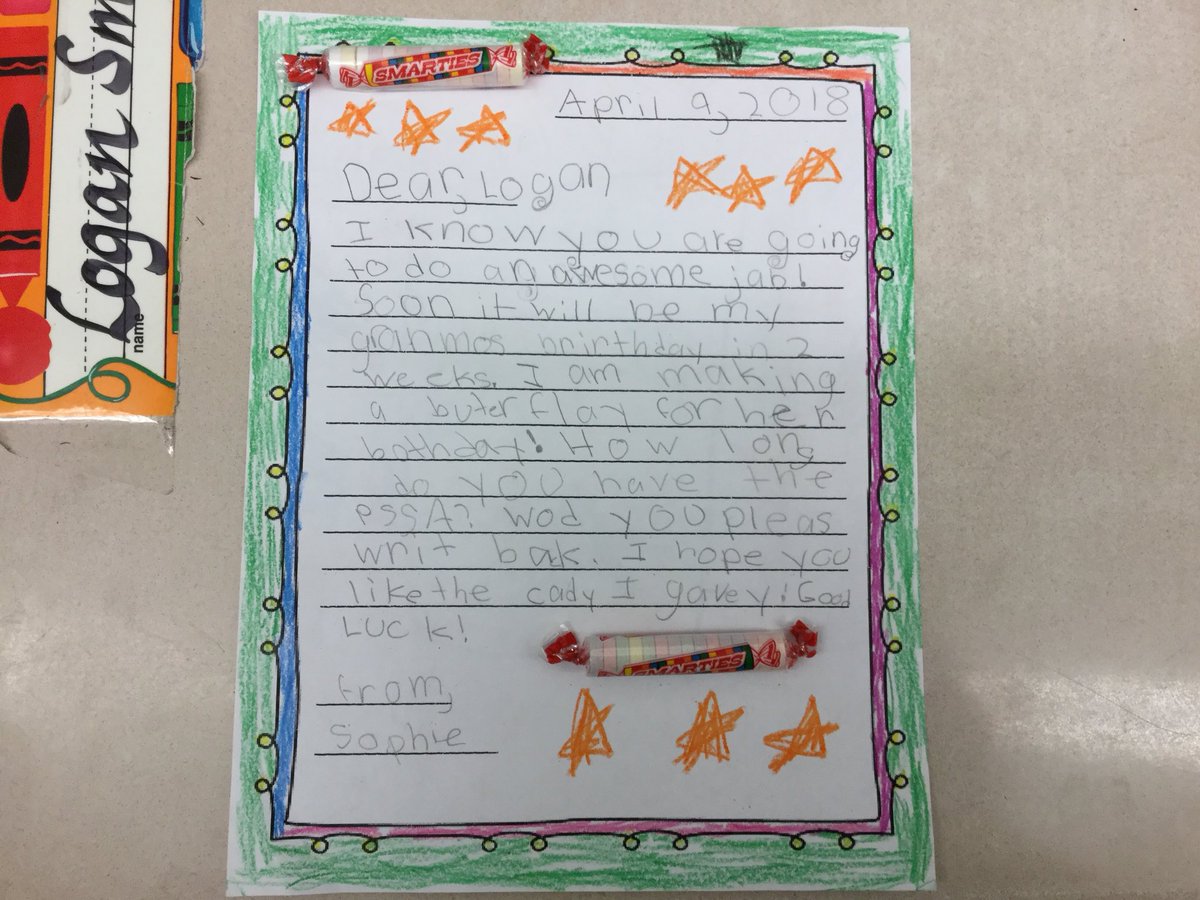 SMARTIES
April 9, 2018
Dear, Logan
I know you are going
to do an awesome job!
Soon it will be my
granmos brirthday in 2
weeks. I am making
a buterflay for her
bothday! How long
do you have the
PSSA? Wod you pleas
writ bak. I hope you
like the cady I gave y! Good
Luck!
SMARTIES
from,
Sophie
Logan Sm
name